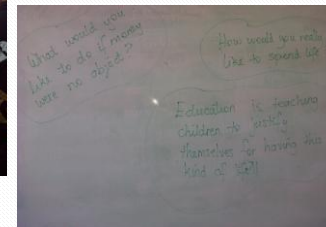 What would you
like to do if money
were no object?
How would you really
like to spend life
Education is teaching
children to justify
themselves for having this
kind of